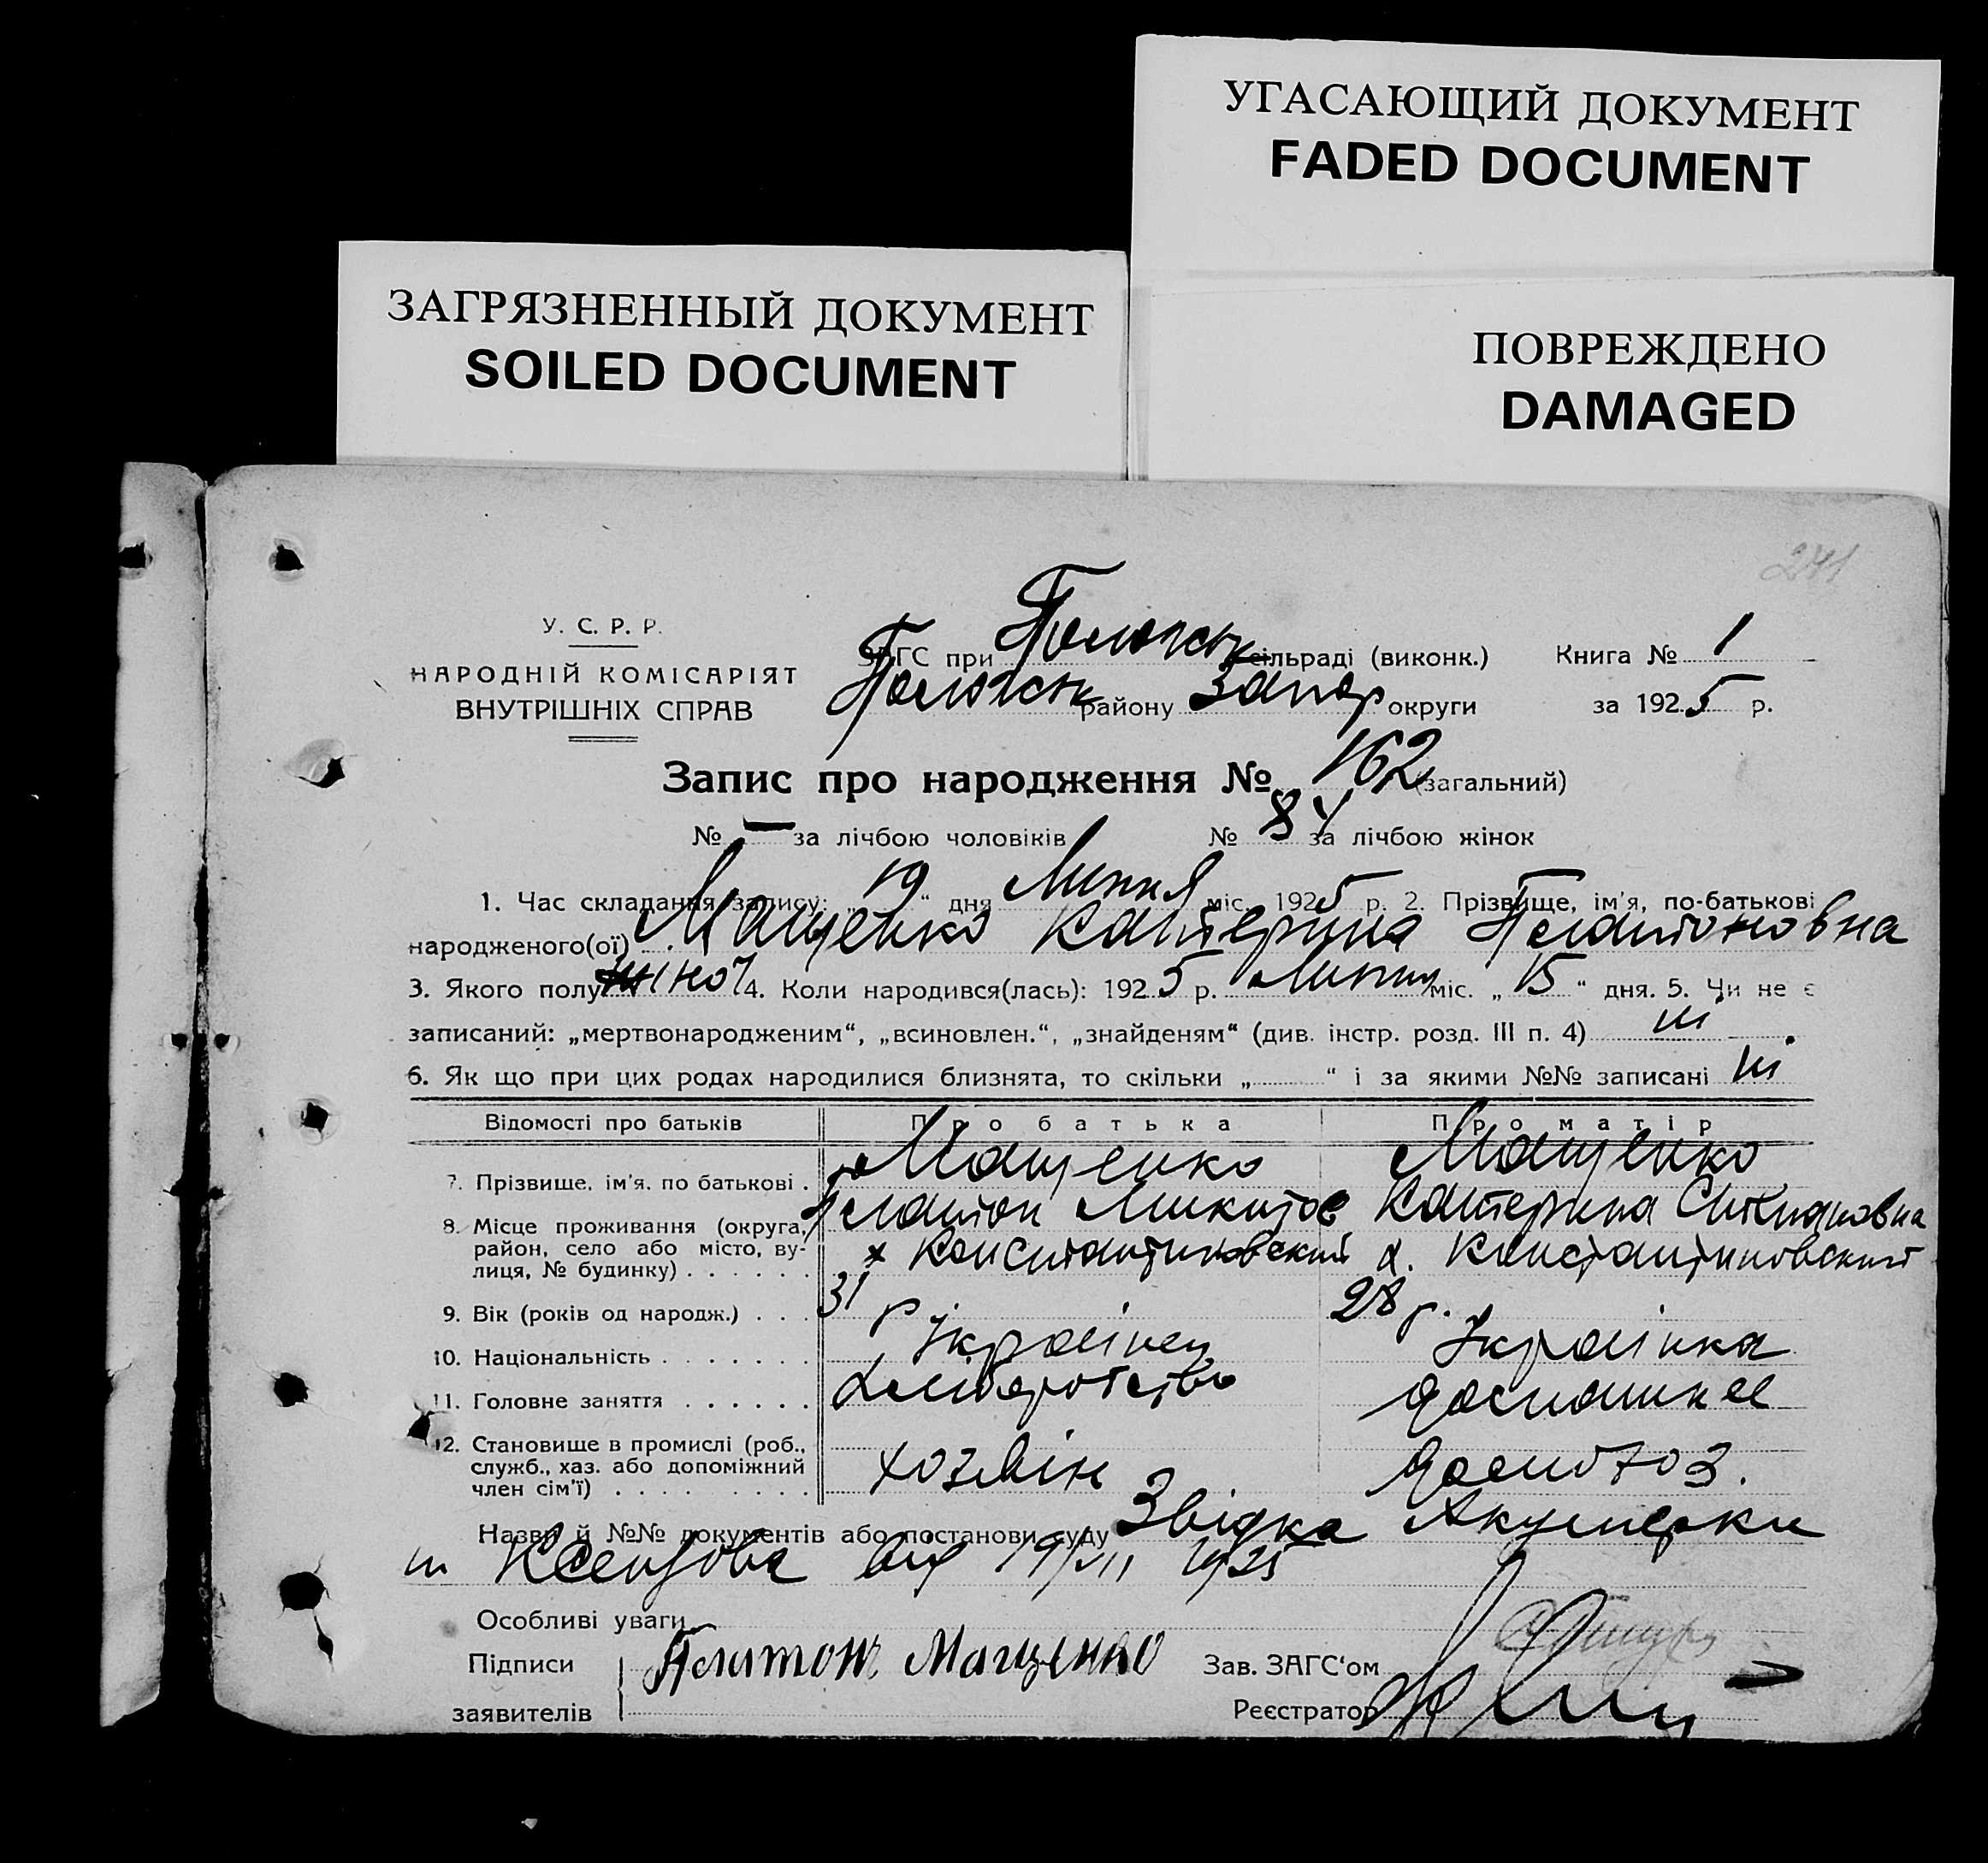 УГАСАЮЩИЙ ДОКУМЕНТ
FADED DOCUMENT
ЗАГРЯЗНЕННЫЙ ДОКУМЕНТ
SOILED DOCUMENT
ПОВРЕЖДЕНО
DAMAGED
241
У. С. Р. Р.
НАРОДНІЙ КОМІСАРІЯТ
ВНУТРІШНІХ СПРАВ
ЗАГС при Пологськ сільраді (виконк.) Книга № 1
Пологськ району Запор округи за 1925 р.
Запис про народження № 162 (загальний)
№ — за лічбою чоловіків № 84 за лічбою жінок
1. Час складання запису: „19“ дня Липня міс. 1925 р. 2. Прізвище, ім'я, по-батькові
народженого(ої) Мащенко Катерина Платоновна
3. Якого полу жіноч 4. Коли народився(лась): 1925 р. Липня міс. „15“ дня. 5. Чи не є
записаний: „мертвонародженим“, „всиновлен.“, „знайденям“ (див. інстр. розд. III п. 4) ні
6. Як що при цих родах народилися близнята, то скільки „ “ і за якими №№ записані ні
Відомості про батьків Про батька Про матір
7. Прізвище, ім'я, по батькові . Мащенко Мащенко
Платон Микитов Катерина Степановна
8. Місце проживання (округа, район, село або місто, вулиця, № будинку) . . . . . . х Константиновский х. Константиновский
9. Вік (років од народж.) . . . 31 р 28 р.
10. Національність . . . . . . . Українец Українка
11. Головне заняття . . . . . . Хліборобство домашнее
12. Становище в промислі (роб., служб., хаз. або допоміжний член сім'ї) . . . . . . . . хозяїн домохоз.
Назви й №№ документів або постанови суду Звідка Акушерки
від 19/VII 1925
Особливі уваги
Підписи Платонъ Мащенко Зав. ЗАГС'ом
заявителів Реєстратор